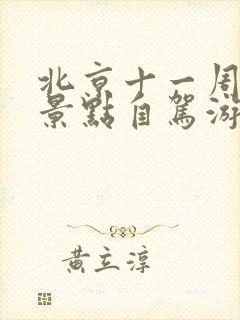 北京十一周
景點自駕游
黃立淳